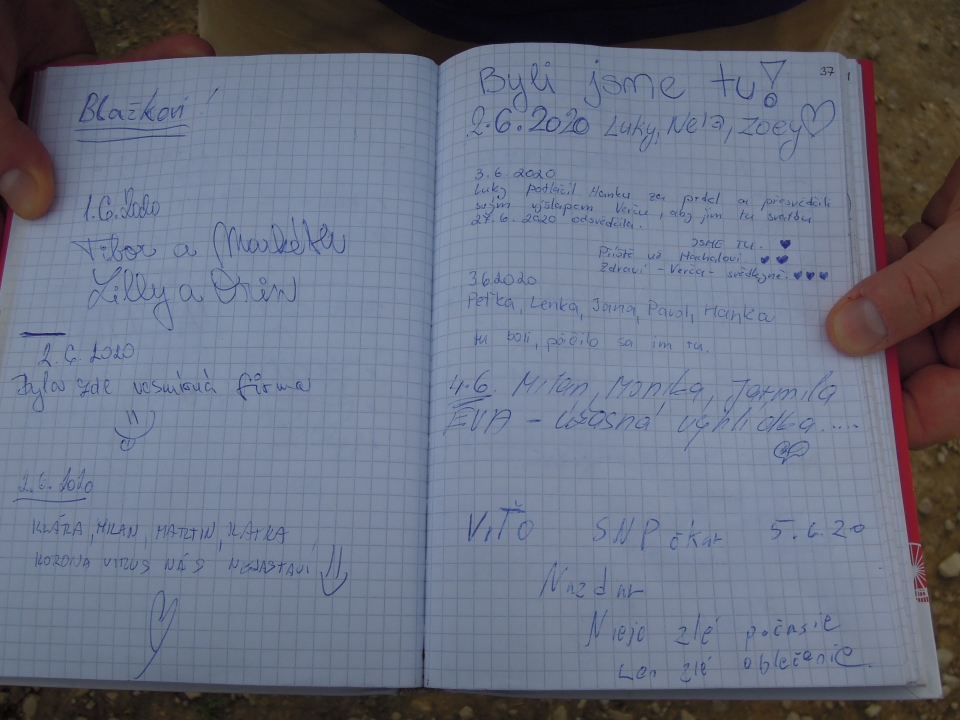 Blažkovi!
1.6.2020
Tibor a Markéta
Lilly a
2.6.2020
Byla zde vesmírná firma
2.6.2020
KLÁRA, MILAN, MARTIN, KATKA
KORONA VIRUS NÁS NEZASTAVÍ
37
Byli jsme tu!
2.6.2020 Luky, Nela, Zoey
3.6.2020
Luky potlačil Hanku za prdel a přesvědčili
svým výšlapem Verču, aby jim tu svatbu
27.6.2020 odsvědčila.
JSME TU.
Příště už Hachalovi
Zdraví - Verča - svědkyně.
3.6.2020
Peťka, Lenka, Jana, Pavol, Hanka
tu boli, páčilo sa im tu.
4.6. Milan, Monika, Jarmila
EVA - úžasná vyhlídka....
VIŤO SNP čkar 5.6.20
Nazdar
Nieje zlé počasie
Len zlé oblečenie.